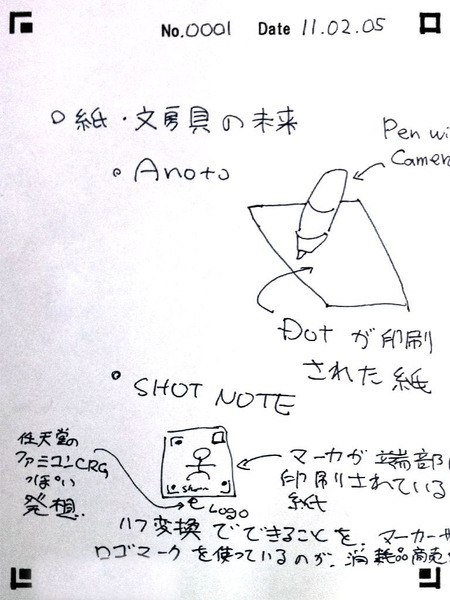 No.0001 Date 11.02.05
○ 紙・文房具の未来
○ Anoto
Pen wi
Camer
Dot が印刷
された紙
○ SHOT NOTE
任天堂の
ファミコンCRG
っぽい
発想.
マーカが端部
印刷されている
紙
Logo
ハフ変換でできることを、マーカー
ロゴマークを使っているのが、消耗品商売